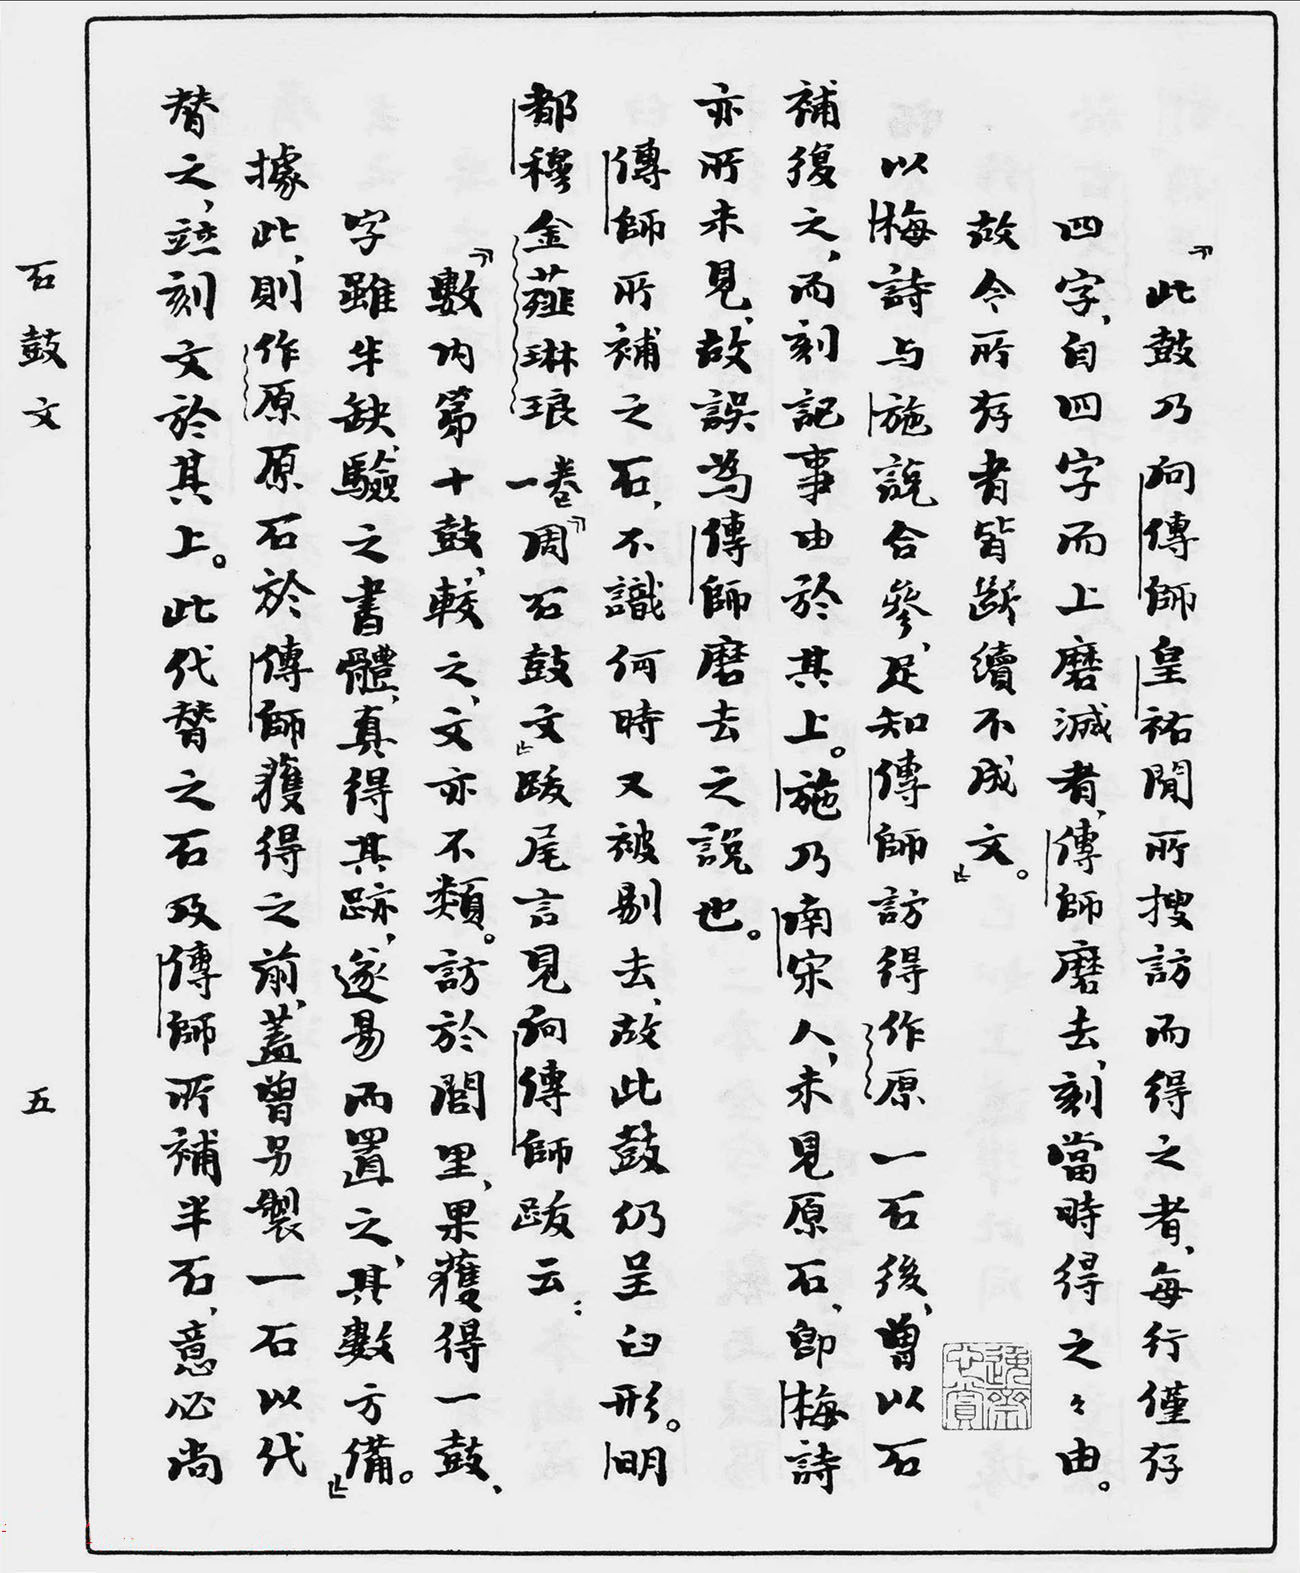 『此鼓乃向傳師皇祐間所搜訪而得之者、每行僅存
四字、自四字而上磨滅者、傳師磨去、刻當時得之々由。
故今所存者皆斷續不成文。』
以梅詩与施說合參、足知傳師訪得作原一石後、曾以石
補復之、而刻記事由於其上。施乃南宋人、未見原石、即梅詩
亦所未見、故誤為傳師磨去之說也。
傳師所補之石、不識何時又被剔去、故此鼓仍呈臼形。明
都穆金薤琳琅一卷『周石鼓文』跋尾言見向傳師跋云：
『數內第十鼓、較之、文亦不類。訪於閭里、果獲得一鼓、
字雖半缺、驗之書體、真得其跡、遂易而置之、其數方備。』
據此、則作原原石於傳師獲得之前、蓋曾另製一石以代
替之、竝刻文於其上。此代替之石及傳師所補半石、意必尚
石鼓文
五